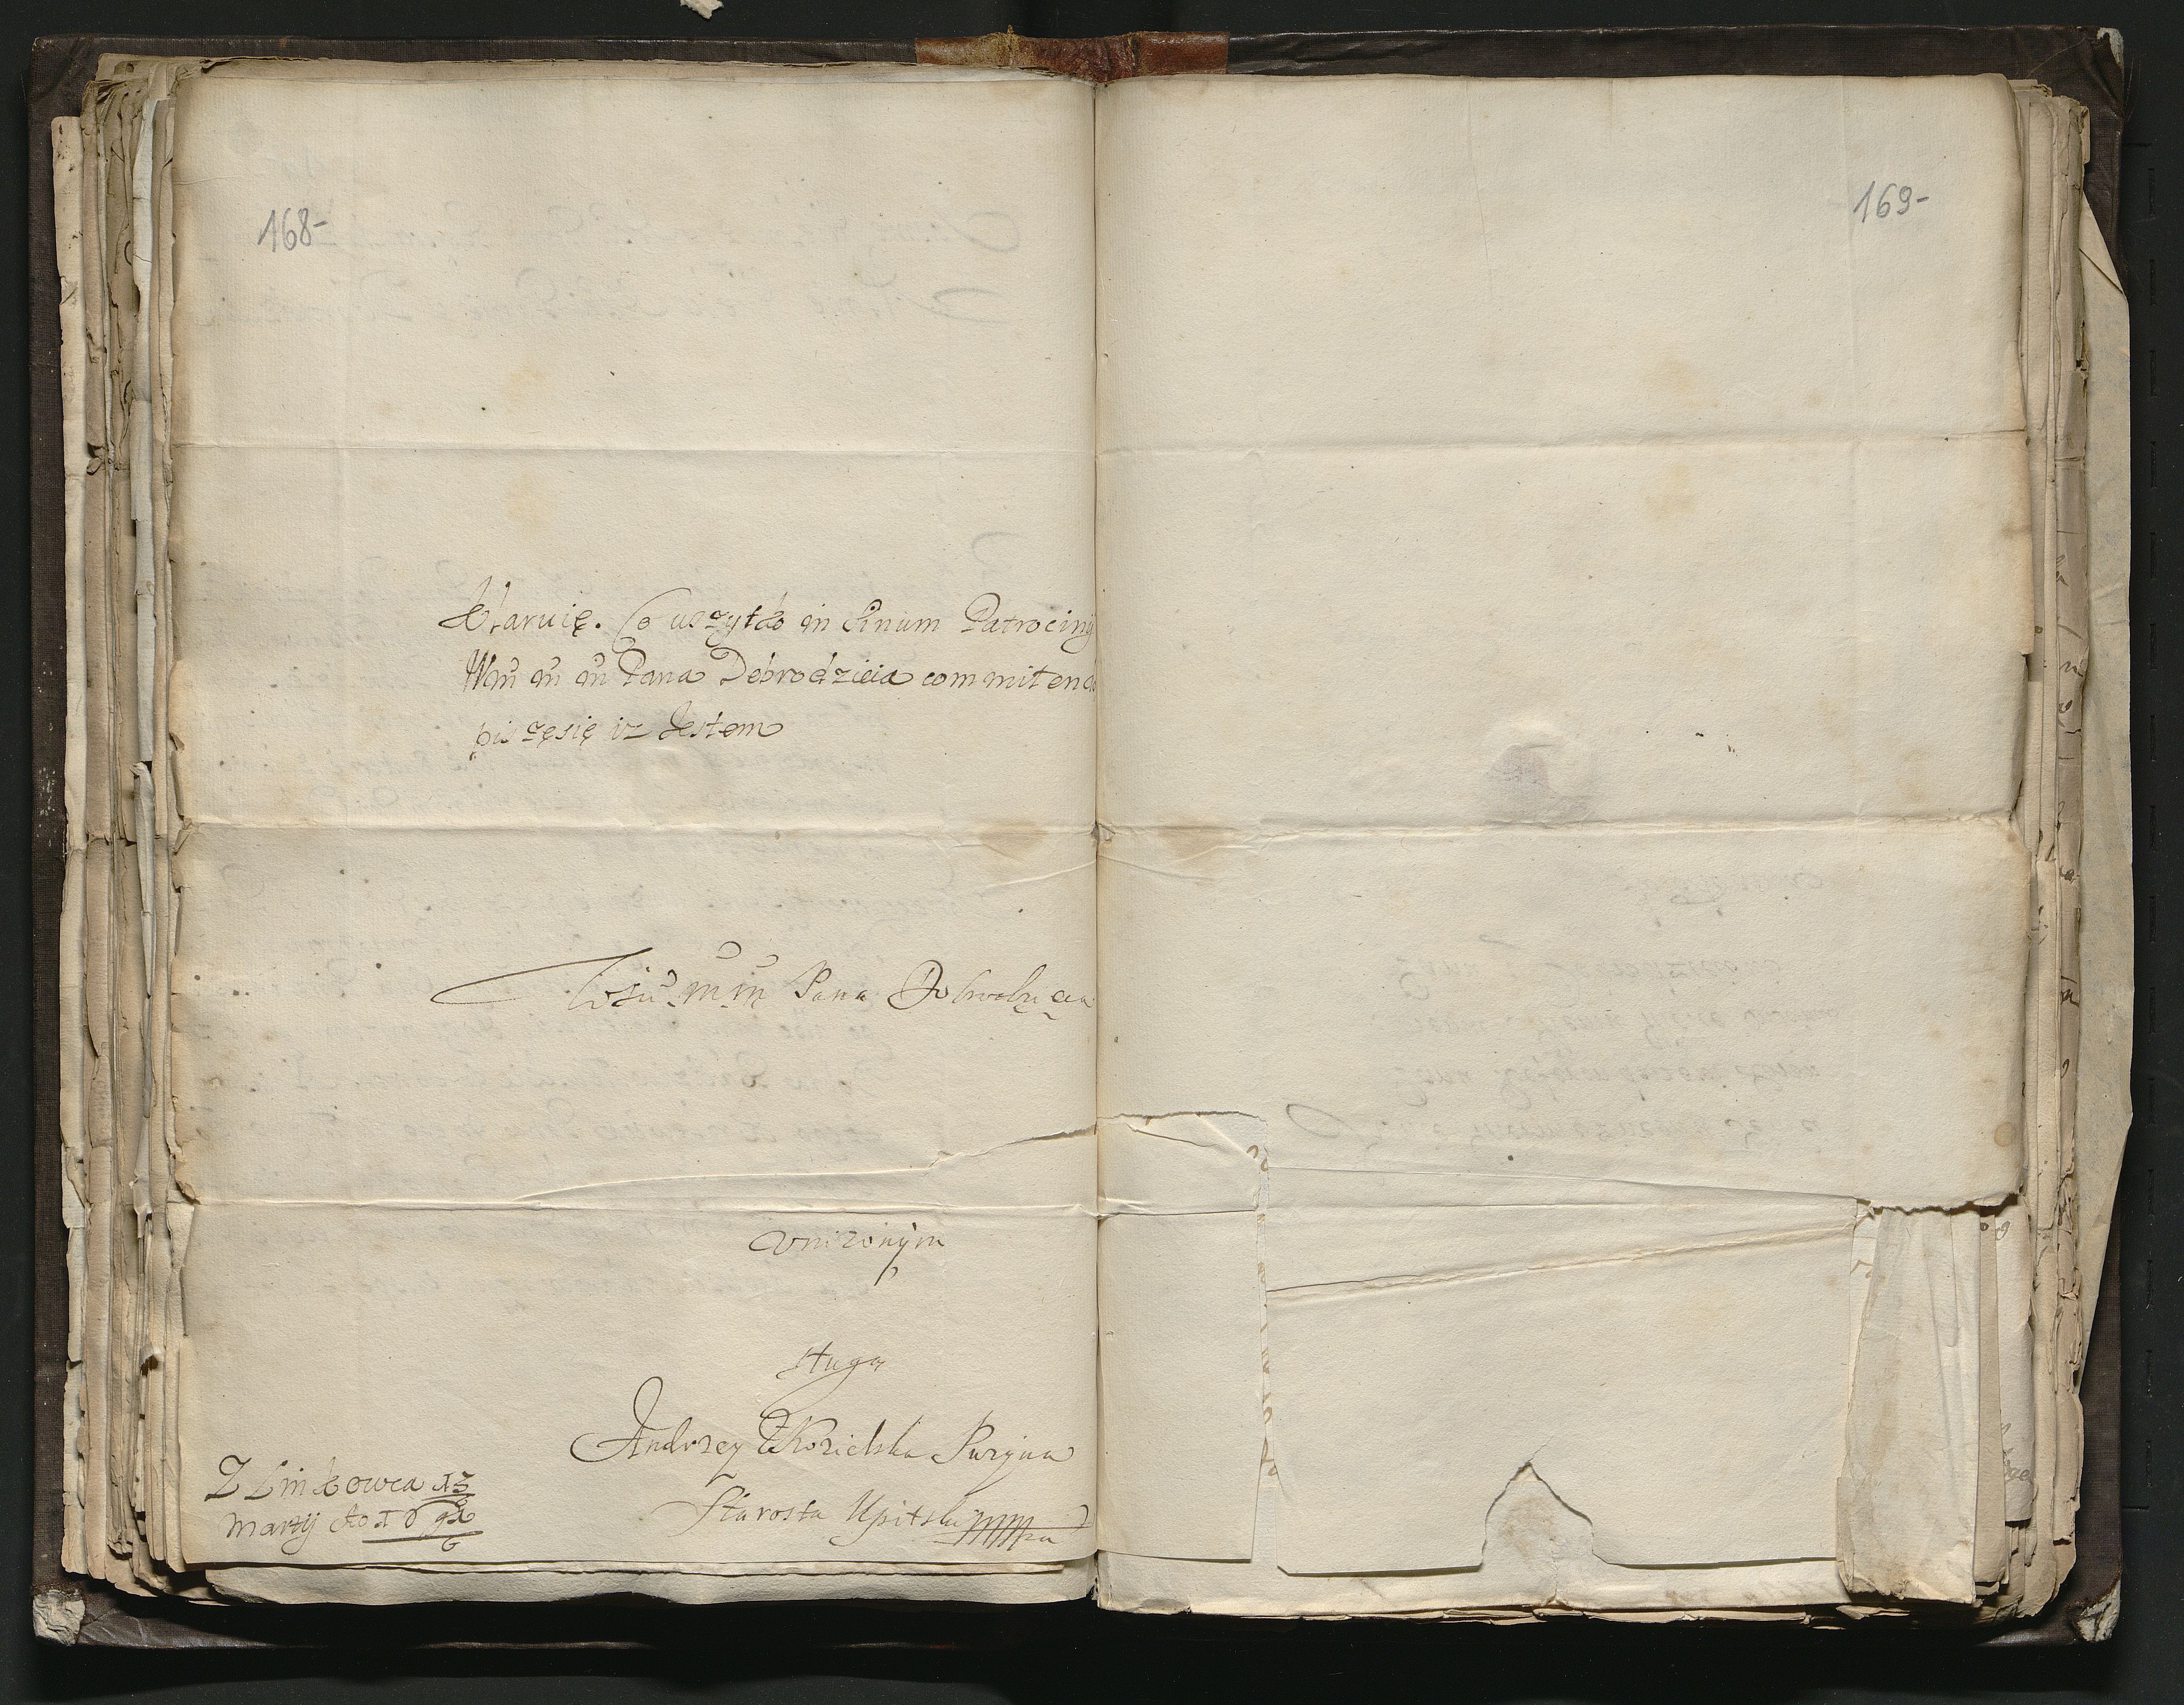 168-
klaruię. Co wszytko in sinum Patrociny
Wm m m Pana Dobrodzieia committendo
piszęsię iz Jestem
WMm m m Pana Dobrodzieia
Vnizonym
sługą
Andrzey Z Kozielska Puzyna
Starosta Upitski mppa
Z Linkowca 13
Martij Ao
169-